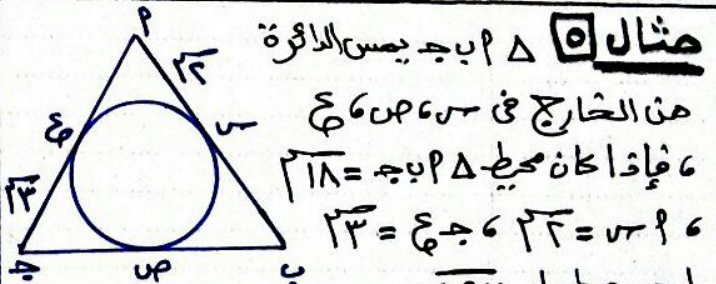 مثال ٥ △ أ ب جـ يمس الدائرة
من الخارج فى س ، ص ، ع
، فإذا كان محيط △ أ ب جـ = ١٨ سم
، أ س = ٢ سم ، جـ ع = ٣ سم
أ
٢ سم
س
ع
٣ سم
جـ
ص
ب